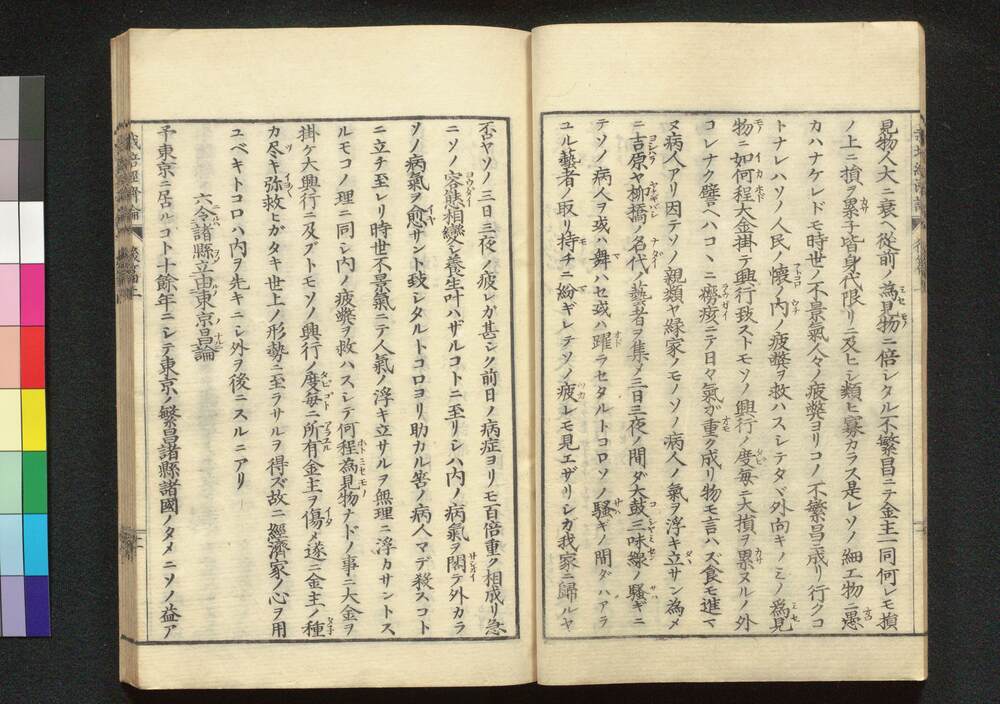 見物人大ニ衰ヘ從前ノ為見物ニ倍シタル不繁昌ニテ金主一同何レモ損
ノ上ニ損ヲ累子皆身代限リニ及ヒシ類ヒ寡カラス是レソノ細工物ニ愚
カハナケレドモ時世ノ不景氣人々ノ疲弊ヨリコノ不繁昌ニ成リ行クコ
トナレハソノ人民ノ懐ノ内ノ疲弊ヲ救ハスシテタヾ外向キノミノ為見
物ニ如何程大金掛テ興行致ストモソノ興行ノ度毎ニ大損ヲ累ヌルノ外
コレナク譬ヘハコヽニ癆痎ニテ日々氣ガ重ク成リ物モ言ハズ食モ進マ
ヌ病人アリ因テソノ親類ヤ緣家ノモノソノ病人ノ氣ヲ浮キ立サン為メ
ニ吉原ヤ柳橋ノ名代ノ藝者ヲ集メ三日三夜ノ間ダ大鼓三味線ノ騒ギニ
テソノ病人ヲ或ハ舞ハセ或ハ躍ラセタルトコロソノ騒ギノ間ダハアラ
ユル藝者ノ取リ持チニ紛ギレテソノ疲レモ見エザリシガ我家ニ歸ルヤ
否ヤソノ三日三夜ノ疲レガ甚シク前日ノ病症ヨリモ百倍重ク相成リ急
ニソノ容態相變シ養生叶ハザルコトニ至リシハ内ノ病氣ヲ閣テ外カラ
ソノ病氣ヲ愈サント致シタルトコロヨリ助カル筈ノ病人マデ殺スコト
ニ立チ至レリ時世不景氣ニテ人氣ノ浮キ立サルヲ無理ニ浮カサントス
ルモコノ理ニ同シ内ノ疲弊ヲ救ハスシテ何程為見物ナドノ事ニ大金ヲ
掛ケ大興行ニ及ブトモソノ興行ノ度毎ニ所有金主ヲ傷メ遂ニ金主ノ種
カ尽キ弥救ヒガタキ世上ノ形勢ニ至ラサルヲ得ズ故ニ經濟家ノ心ヲ用
ユベキトコロハ内ヲ先キニシ外ヲ後ニスルニアリ
六今諸縣立由東京昌論
予東京ニ居ルコト十餘年ニシテ東京ノ繁昌諸縣諸國ノタメニソノ益ア
栽培經濟論